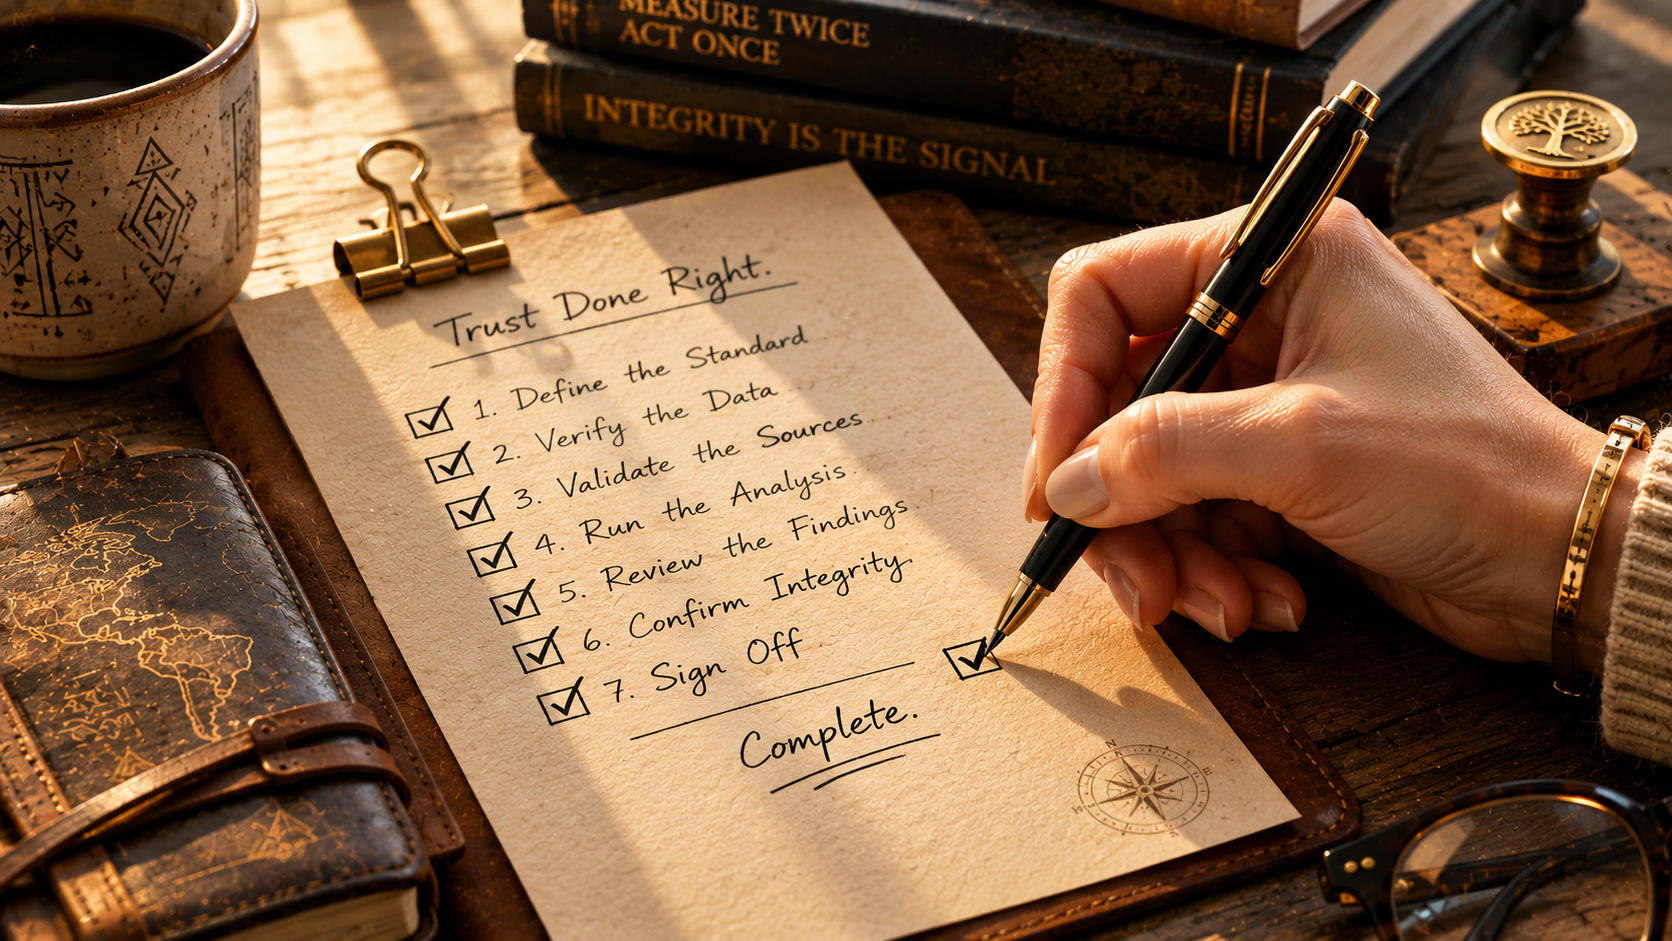 MEASURE TWICE
ACT ONCE
INTEGRITY IS THE SIGNAL
Trust Done Right.
1. Define the Standard
2. Verify the Data
3. Validate the Sources
4. Run the Analysis
5. Review the Findings
6. Confirm Integrity.
7. Sign Off
Complete.
N